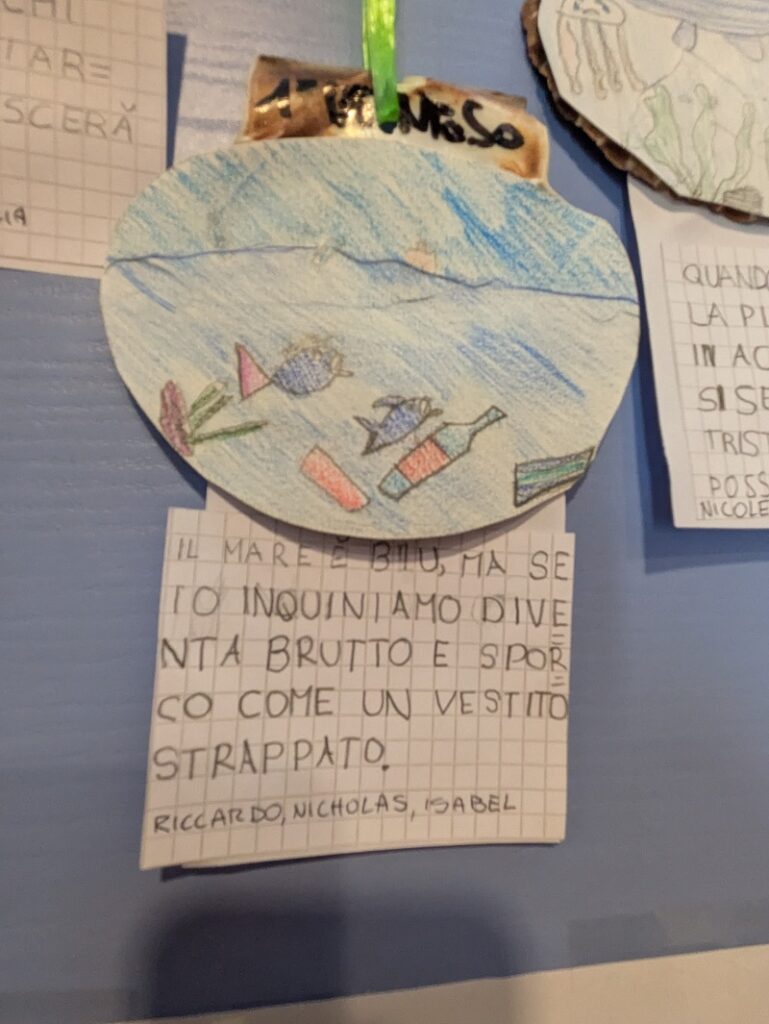 CHI
TAR=
SCERĂ
IL MARE È BLU, MA SE
LO INQUINIAMO DIVE=
NTA BRUTTO E SPOR=
CO COME UN VESTITO
STRAPPATO.
RICCARDO, NICHOLAS, ISABEL
QUANDO
LA
IN AC
SI SE
TRIST
POSS
NICOLE